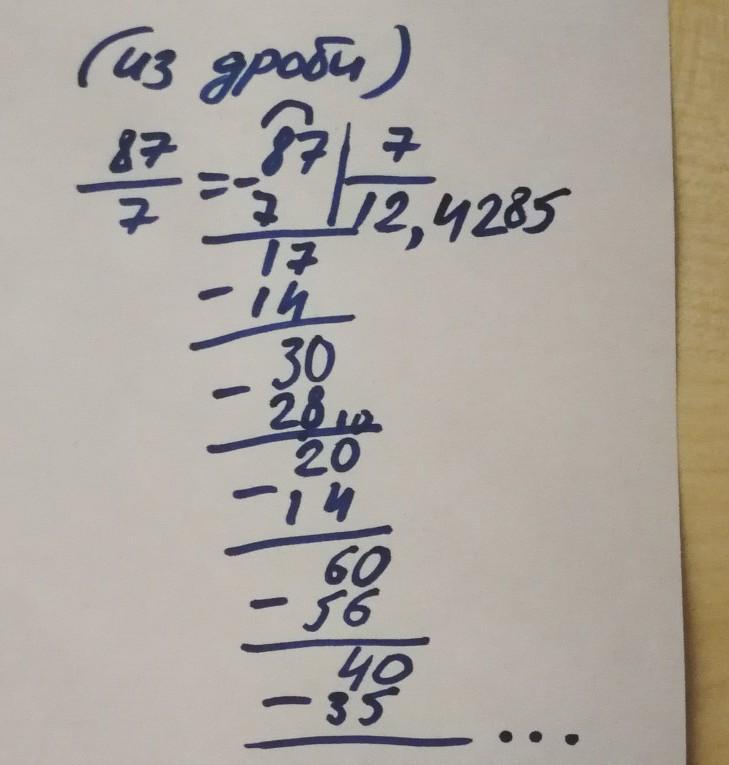 (из дроби)
87/7 = - 87 | 7
7 12,4285
17
- 14
30
- 28 10
20
- 14
60
- 56
40
- 35
...